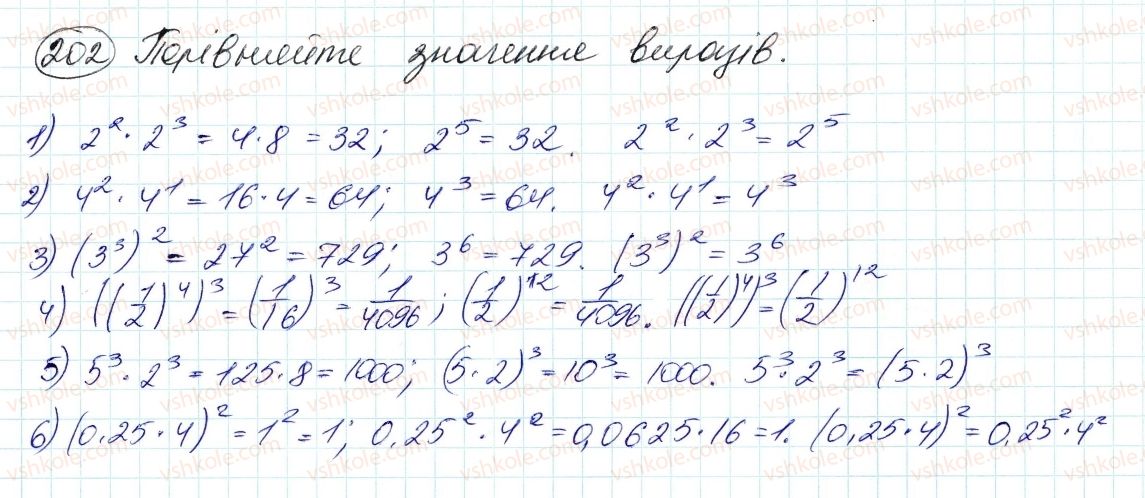 202 Порівняйте значення виразів.
1) 2² · 2³ = 4 · 8 = 32; 2⁵ = 32. 2² · 2³ = 2⁵
2) 4² · 4¹ = 16 · 4 = 64; 4³ = 64. 4² · 4¹ = 4³
3) (3³)² = 27² = 729; 3⁶ = 729. (3³)² = 3⁶
4) ((1/2)⁴)³ = (1/16)³ = 1/4096; (1/2)¹² = 1/4096. ((1/2)⁴)³ = (1/2)¹²
5) 5³ · 2³ = 125 · 8 = 1000; (5 · 2)³ = 10³ = 1000. 5³ · 2³ = (5 · 2)³
6) (0,25 · 4)² = 1² = 1; 0,25² · 4² = 0,0625 · 16 = 1. (0,25 · 4)² = 0,25² · 4²